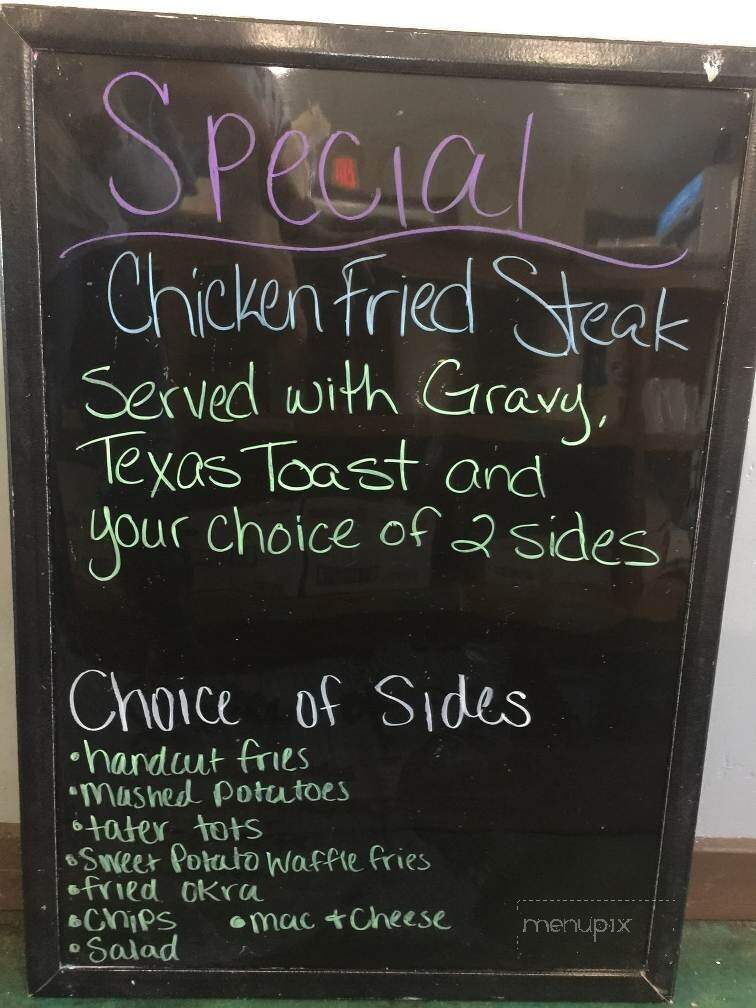 Special
Chicken Fried Steak
Served with Gravy,
Texas Toast and
your choice of 2 sides
Choice of Sides
• handcut fries
• Mashed Potatoes
• tater tots
• Sweet Potato Waffle fries
• fried okra
• Chips • mac + Cheese
• Salad
menupix